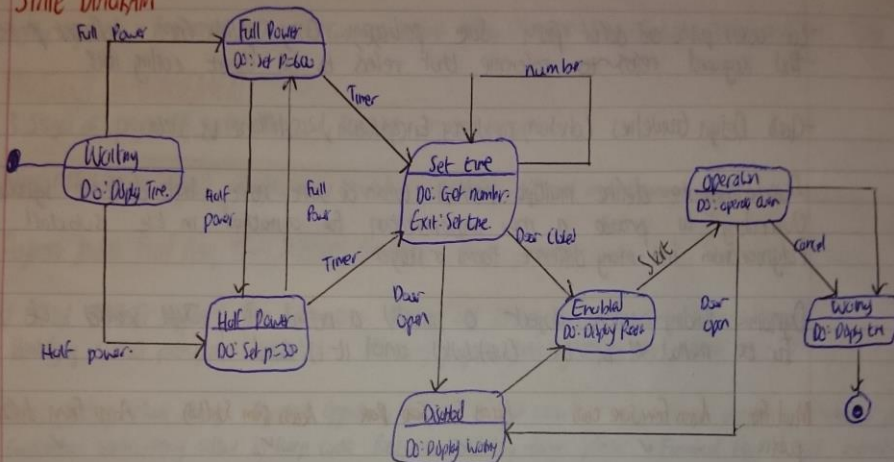 STATE DIAGRAM
Full Power
Full Power
Do: Set P=600
Timer
number
Waiting
Do: Display Time.
Half
power
Full
Power
Set time
Do: Get number.
Exit: Set time
Operation
Do: operate oven
Door Closed
Start
Cancel
Timer
Half Power
Do: Set p=300
Half power.
Door
open
Enabled
Do: Display Ready
Door
open
Waiting
Do: Display time
Disabled
Do: Display Waiting